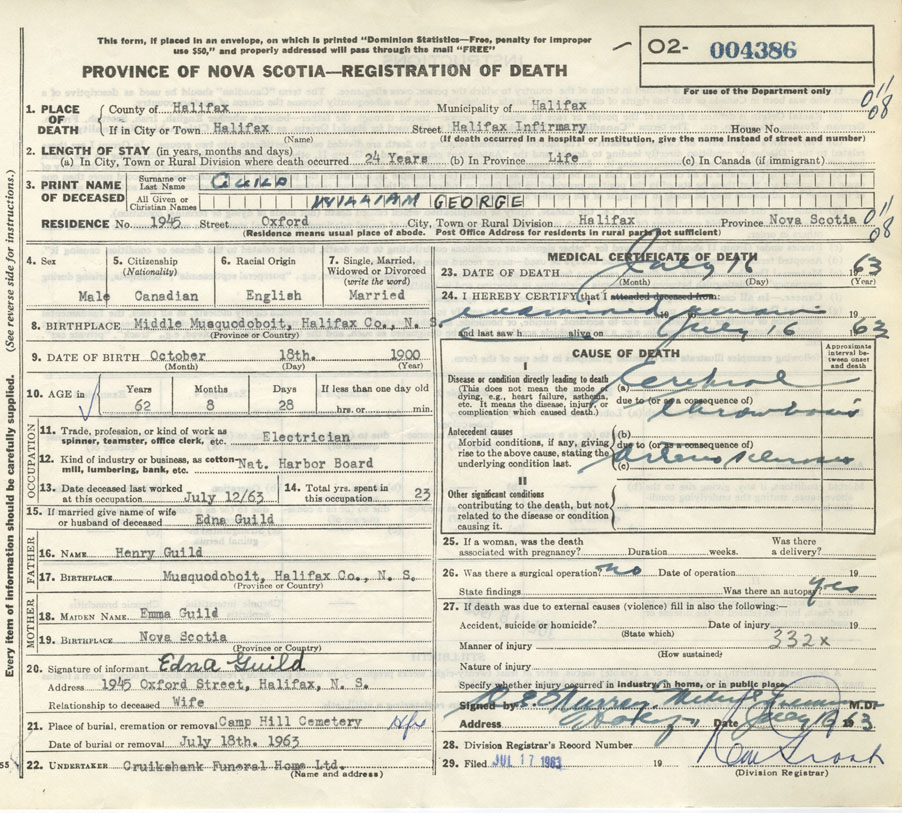 This form, if placed in an envelope, on which is printed "Dominion Statistics—Free, penalty for improper
use $50," and properly addressed will pass through the mail "FREE"
PROVINCE OF NOVA SCOTIA—REGISTRATION OF DEATH
O2- 004386
For use of the Department only
011
08
1. PLACE OF DEATH
County of Halifax Municipality of Halifax
If in City or Town Halifax Street Halifax Infirmary House No.
(Name) (If death occurred in a hospital or institution, give the name instead of street and number)
2. LENGTH OF STAY (in years, months and days)
(a) In City, Town or Rural Division where death occurred 24 Years (b) In Province Life (c) In Canada (if immigrant)
3. PRINT NAME OF DECEASED
Surname or Last Name GUILD
All Given or Christian Names WILLIAM GEORGE
RESIDENCE No. 1945 Street Oxford City, Town or Rural Division Halifax Province Nova Scotia
(Residence means usual place of abode. Post Office Address for residents in rural parts not sufficient)
011
08
4. Sex Male
5. Citizenship (Nationality) Canadian
6. Racial Origin English
7. Single, Married, Widowed or Divorced (write the word) Married
8. BIRTHPLACE Middle Musquodoboit, Halifax Co., N. S.
(Province or Country)
9. DATE OF BIRTH October 18th. 1900
(Month) (Day) (Year)
10. AGE in Years 62 Months 8 Days 28 If less than one day old hrs. or min.
OCCUPATION
11. Trade, profession, or kind of work as spinner, teamster, office clerk, etc. Electrician
12. Kind of industry or business, as cotton mill, lumbering, bank, etc. Nat. Harbor Board
13. Date deceased last worked at this occupation July 12/63
14. Total yrs. spent in this occupation 23
15. If married give name of wife or husband of deceased Edna Guild
FATHER
16. NAME Henry Guild
17. BIRTHPLACE Musquodoboit, Halifax Co., N. S.
(Province or Country)
MOTHER
18. MAIDEN NAME Emma Guild
19. BIRTHPLACE Nova Scotia
(Province or Country)
20. Signature of informant Edna Guild
Address 1945 Oxford Street, Halifax, N. S.
Relationship to deceased Wife
21. Place of burial, cremation or removal Camp Hill Cemetery Hfx
Date of burial or removal July 18th. 1963
22. UNDERTAKER Cruikshank Funeral Home Ltd.
(Name and address)
Every item of information should be carefully supplied. (See reverse side for instructions.)
55
MEDICAL CERTIFICATE OF DEATH
23. DATE OF DEATH July 16 1963
(Month) (Day) (Year)
24. I HEREBY CERTIFY that I attended deceased from:
examined remains 19
and last saw h alive on July 16 1963
CAUSE OF DEATH
Approximate interval between onset and death
I
Disease or condition directly leading to death
(This does not mean the mode of dying, e.g., heart failure, asthenia, etc. It means the disease, injury, or complication which caused death.)
(a) Cerebral
due to (or as a consequence of)
thrombosis
Antecedent causes
Morbid conditions, if any, giving rise to the above cause, stating the underlying condition last.
(b)
due to (or as a consequence of)
Arterio sclerosis
(c)
II
Other significant conditions
contributing to the death, but not related to the disease or condition causing it.
25. If a woman, was the death associated with pregnancy? Duration weeks. Was there a delivery?
26. Was there a surgical operation? no Date of operation 19
State findings Was there an autopsy? yes
27. If death was due to external causes (violence) fill in also the following:
Accident, suicide or homicide? Date of injury 19
(State which)
Manner of injury 332x
(How sustained)
Nature of injury
Specify whether injury occurred in industry, in home, or in public place.
Signed by M.D.
Address Date July 1963
28. Division Registrar's Record Number
29. Filed JUL 17 1963 19
(Division Registrar)